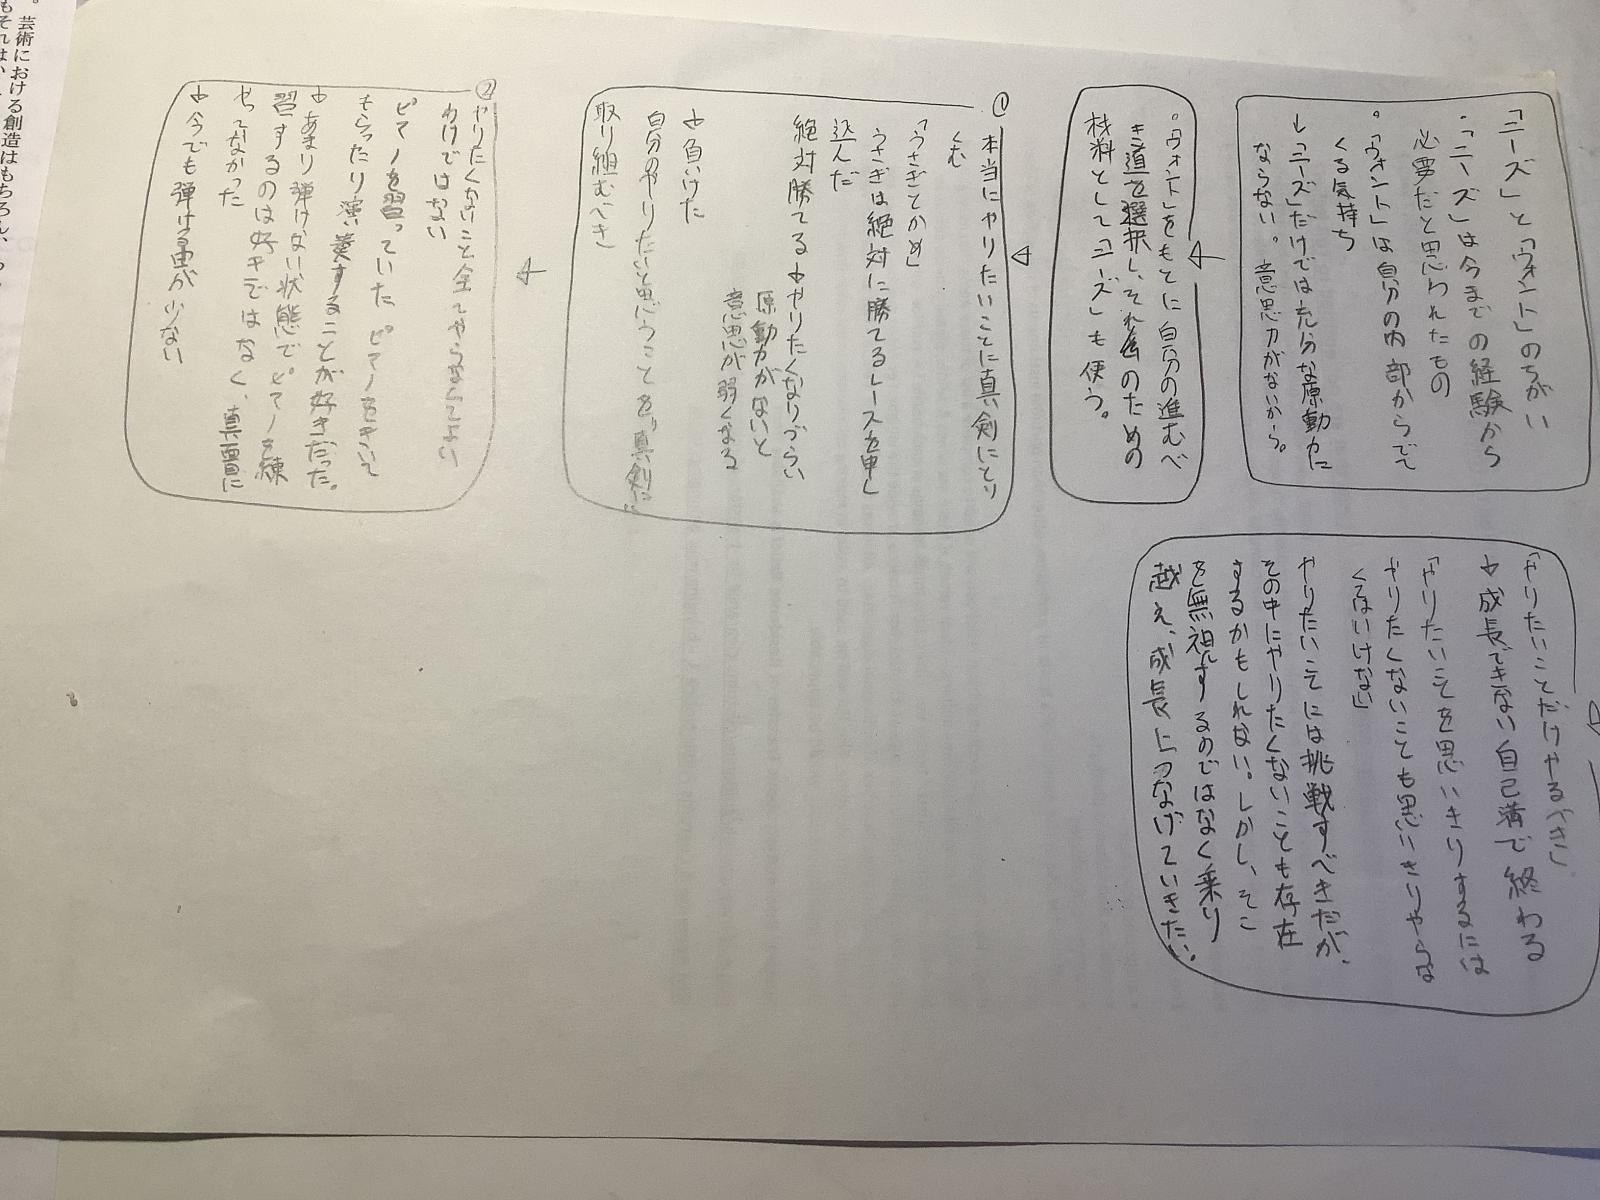 「ニーズ」と「ウォント」のちがい
・「ニーズ」は今までの経験から
必要だと思われたもの
・「ウォント」は自分の内部からでて
くる気持ち
↓「ニーズ」だけでは充分な原動力に
ならない。意思力がないから。
・「ウォント」をもとに自分の進むべ
き道を選択し、それ
のための
材料として「ニーズ」も使う。
① 本当にやりたいことに真剣にとり
くむ
「うさぎとかめ」
うさぎは絶対に勝てるレースを申し
込んだ
絶対勝てる→やりたくなりづらい
原動力がないと
意思が弱くなる
→負けた
自分のやりたいと思うことを真剣に
取り組むべき
② やりたくないこと全てやらなくてよい
わけではない
ピアノを習っていた ピアノをきいて
もらったり演奏することが好きだった。
→あまり弾けない状態でピアノを練
習するのは好キではなく、真面目に
やってなかった
→今でも弾ける曲が少ない
「やりたいことだけやるべき」
→成長できない自己満で終わる
「やりたいことを思いきりするには
やりたくないことも思いきりやらな
くてはいけない」
やりたいことには挑戦すべきだが、
その中にやりたくないことも存在
するかもしれない。しかし、そこ
を無視するのではなく乗り
越え、成長につなげていきたい。
芸術における創造はもちろん、